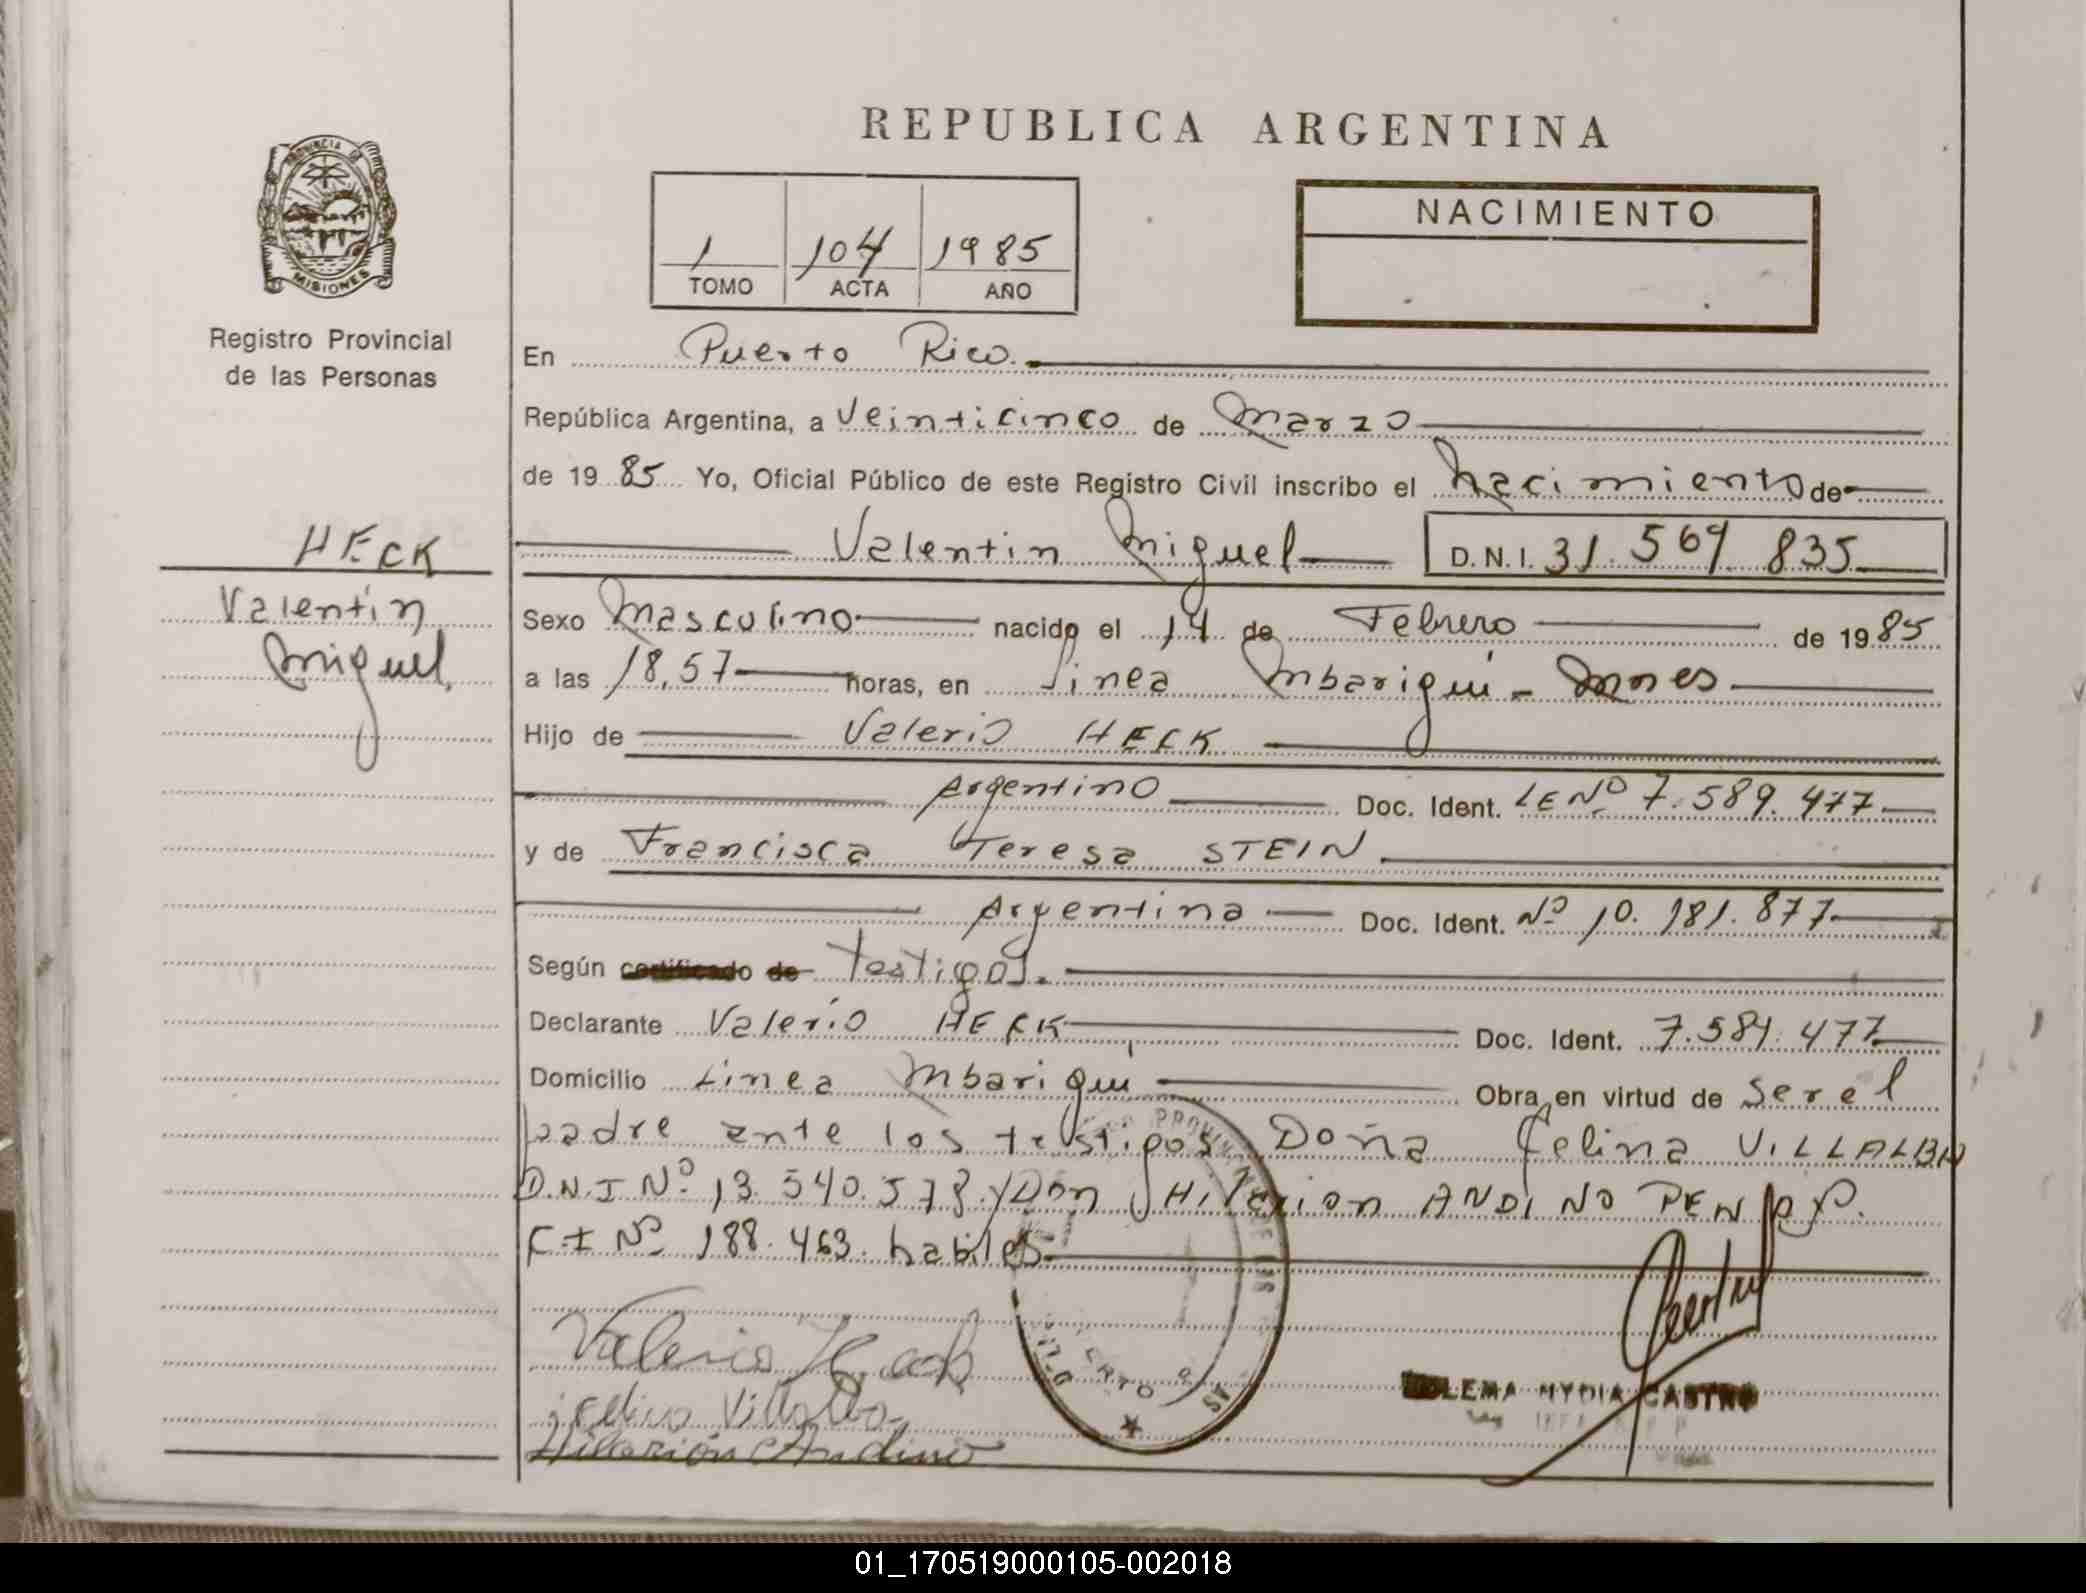 REPUBLICA ARGENTINA
PROVINCIA DE
MISIONES
Registro Provincial
de las Personas
1 104 1985
TOMO ACTA AÑO
NACIMIENTO
En Puerto Rico.
República Argentina, a Veinticinco de Marzo
de 19 85 Yo, Oficial Público de este Registro Civil inscribo el Nacimiento de
HECK
Valentin
Miguel,
Valentin Miguel D.N.I. 31.569.835
Sexo Masculino nacido el 14 de Febrero de 19 85
a las 18,57 horas, en Linea Mbarigui - Mnes
Hijo de Valerio HECK
Argentino Doc. Ident. LE Nº 7.589.477
y de Francisca Teresa STEIN
Argentina Doc. Ident. Nº 10.181.877
Según certificado de testigos.
Declarante Valerio HECK Doc. Ident. 7.589.477
Domicilio Linea Mbarigui Obra en virtud de ser el
padre ante los testigos Doña Celina VILLALBA
D.N.I Nº 13.540.573 y Don Hilarion ANDINO
C.I Nº 188.463. habiles.
Valerio Heck
Villalba
Hilarion Andino
MYDIA CASTRO
01_170519000105-002018